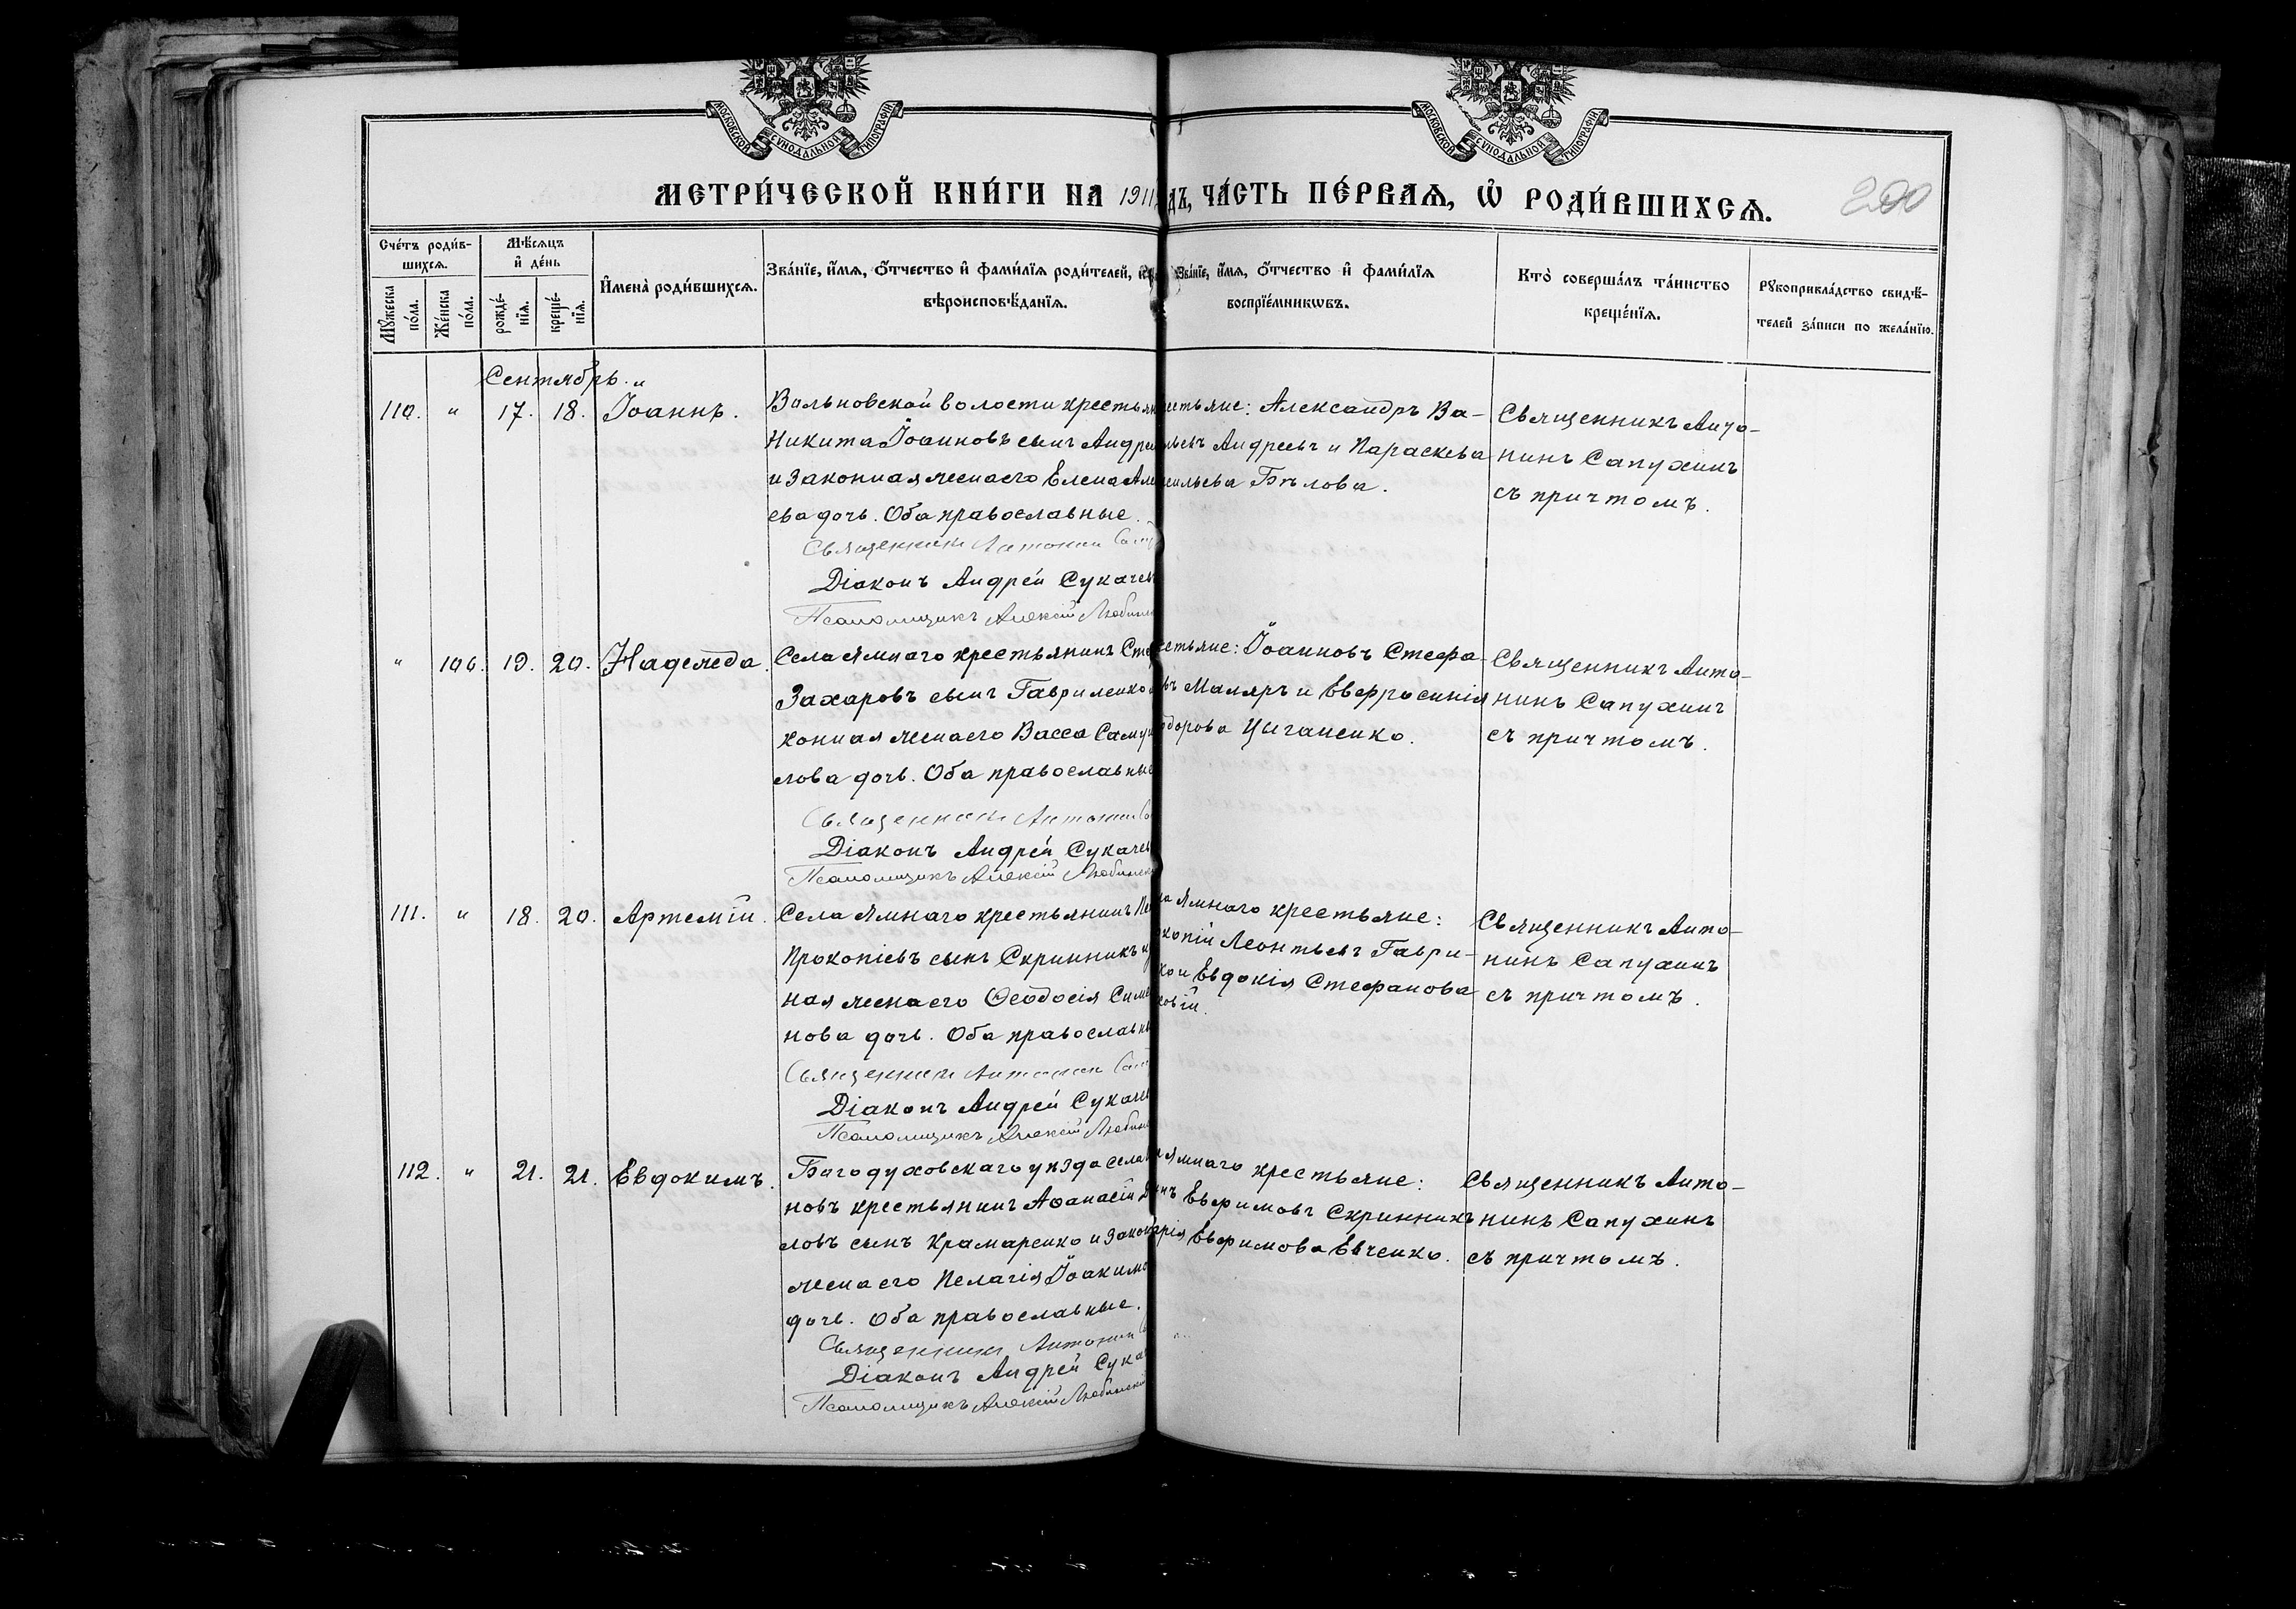 МОСКОВСКОЙ СУНОДАЛЬНОЙ ТИПОГРАФІИ
МОСКОВСКОЙ СУНОДАЛЬНОЙ ТИПОГРАФІИ
МЕТРИ́ЧЕСКОЙ КНИ́ГИ НА 1911
дъ, ЧА́СТЬ ПЕ́РВАѦ, Ѡ҆ РОДИ́ВШИХСѦ.
200
Сче́тъ роди́в-
шихсѧ.
Мꙋ́жеска
по́ла.
Же́нска
по́ла.
Мѣ́сѧцъ
и҆ де́нь
рожде́-
нїѧ.
креще́-
нїѧ.
И҆мена̀ роди́вшихсѧ.
Зва́нїе, и҆́мѧ, ѻ҆́тчество и҆ фами́лїѧ роди́телей,
вѣроисповѣ́данїѧ.
Зва́нїе, и҆́мѧ, ѻ҆́тчество и҆ фами́лїѧ
воспрїе́мникѡвъ.
Кто̀ соверша́лъ та́инство
креще́нїѧ.
Рꙋкоприкла́дство свидѣ́-
телей за́писи по жела́нїю.
Сентябрь. "
110. " 17. 18. Іоаннъ.
Вольновской волости крестьян
Никита Іоанновъ сынъ Андре
и законная жена его Елена Але
ева дочь. Оба православные.
Священникъ Антонин Сап
Діаконъ Андрей Сукачев
Псаломщикъ Алексій Любинс
естьяне: Александръ Ва-
ильевъ Андреевъ и Параскева
сильева Бѣлова.
Священникъ Анто-
нинъ Сапухинъ
съ причтомъ.
" 106. 19. 20. Надежда.
Села Ямнаго крестьянинъ Сте
Захаровъ сынъ Гавриленко и
конная жена его Васса Саму
лова дочь. Оба православные
Священникъ Антонин Са
Діаконъ Андрей Сукачев
Псаломщикъ Алексій Любинск
естьяне: Іоанновъ Стефа-
въ Маляръ и Евфросинія
одорова Цыганенко.
Священникъ Анто-
нинъ Сапухинъ
съ причтомъ.
111. " 18. 20. Артемій.
Села Ямнаго крестьянинъ
Прокопіевъ сынъ Скринникъ и
ная жена его Ѳеодосія Симе
нова дочь. Оба православны
Священникъ Антонин Сап
Діаконъ Андрей Сукаче
Псаломщикъ Алексій Любинс
ла Ямнаго крестьяне:
окопій Леонтьевъ Гаври-
ко и Евдокія Стефанова
овій.
Священникъ Анто-
нинъ Сапухинъ
съ причтомъ.
112. " 21. 21. Евдокимъ.
Богодуховскаго уѣзда села
новъ крестьянинъ Аѳанасій
ловъ сынъ Крамаренко и закон
жена его Пелагія Іоакимо
дочь. Оба православные.
Священникъ Антонин
Діаконъ Андрей Сука
Псаломщикъ Алексій Любинскі
Ямнаго крестьяне:
Евфимовъ Скринникъ
рія Евфимова Евченко.
Священникъ Анто-
нинъ Сапухинъ
съ причтомъ.